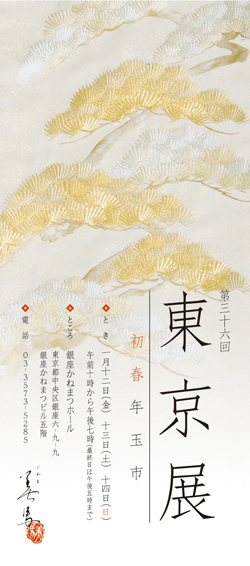 第三十六回
東京展
初春年玉市
とき 一月十二日(金) 十三日(土) 十四日(日)
午前十時から午後七時(最終日は午後五時まで)
ところ 銀座かねまつホール
東京都中央区銀座六-九-九
銀座かねまつビル五階
電話 03-3573-5285